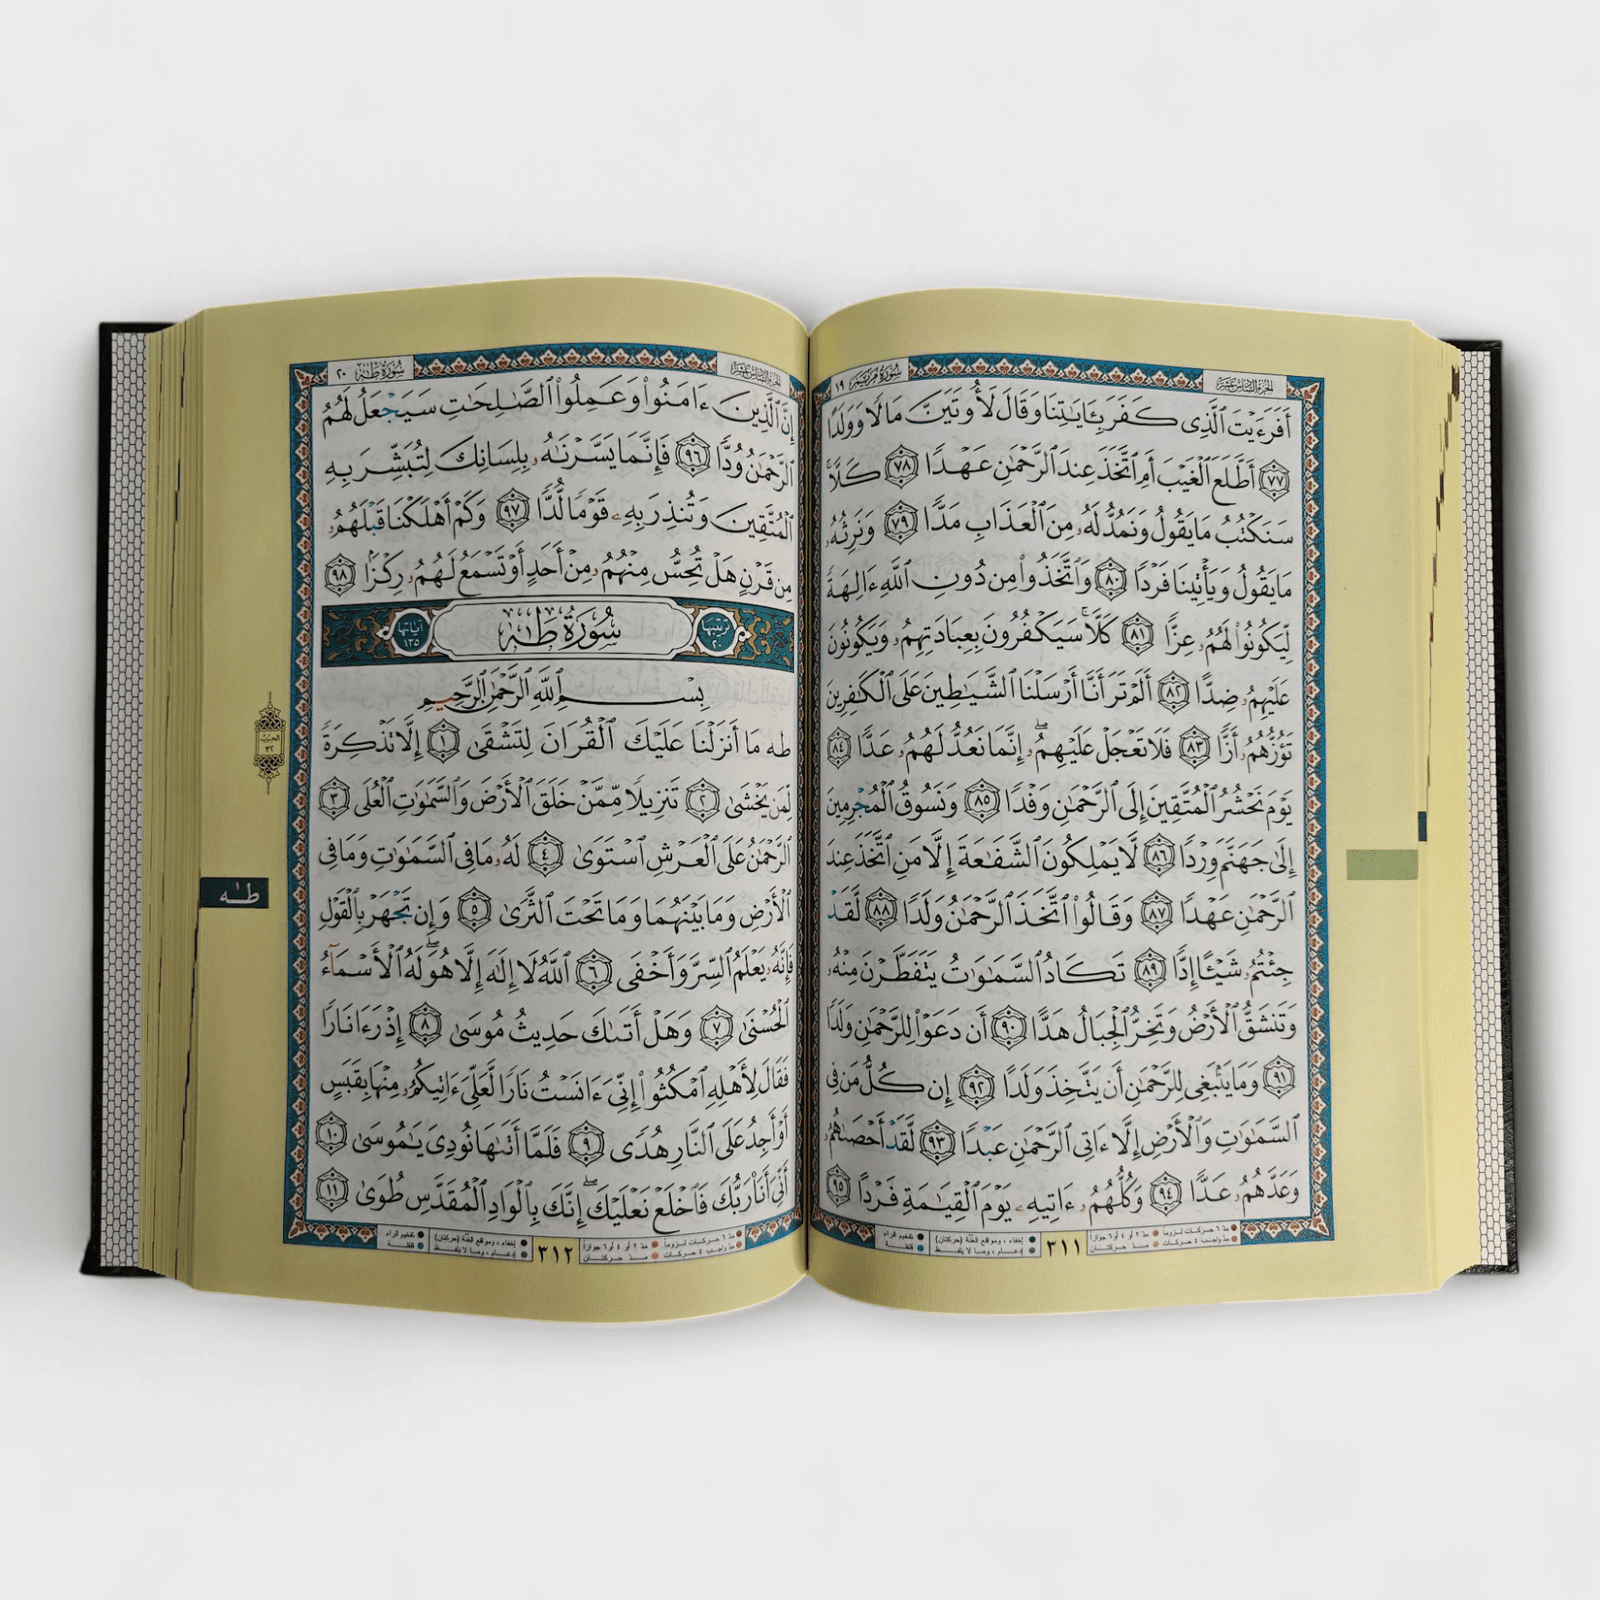 الجزء السادس عشر
سُورَةُ مَرْيَمَ ١٩
أَفَرَءَيْتَ ٱلَّذِى كَفَرَ بِـَٔايَٰتِنَا وَقَالَ لَأُوتَيَنَّ مَالًا وَوَلَدًا
٧٧ أَطَّلَعَ ٱلْغَيْبَ أَمِ ٱتَّخَذَ عِندَ ٱلرَّحْمَٰنِ عَهْدًا ٧٨ كَلَّا
سَنَكْتُبُ مَا يَقُولُ وَنَمُدُّ لَهُۥ مِنَ ٱلْعَذَابِ مَدًّا ٧٩ وَنَرِثُهُۥ
مَا يَقُولُ وَيَأْتِينَا فَرْدًا ٨٠ وَٱتَّخَذُوا۟ مِن دُونِ ٱللَّهِ ءَالِهَةً
لِّيَكُونُوا۟ لَهُمُۥ عِزًّا ٨١ كَلَّا سَيَكْفُرُونَ بِعِبَادَتِهِمُۥ وَيَكُونُونَ
عَلَيْهِمُۥ ضِدًّا ٨٢ أَلَمْ تَرَ أَنَّا أَرْسَلْنَا ٱلشَّيَٰطِينَ عَلَى ٱلْكَٰفِرِينَ
تَؤُزُّهُمُۥ أَزًّا ٨٣ فَلَا تَعْجَلْ عَلَيْهِمُۥ إِنَّمَا نَعُدُّ لَهُمُۥ عَدًّا ٨٤
يَوْمَ نَحْشُرُ ٱلْمُتَّقِينَ إِلَى ٱلرَّحْمَٰنِ وَفْدًا ٨٥ وَنَسُوقُ ٱلْمُجْرِمِينَ
إِلَىٰ جَهَنَّمَ وِرْدًا ٨٦ لَّا يَمْلِكُونَ ٱلشَّفَٰعَةَ إِلَّا مَنِ ٱتَّخَذَ عِندَ
ٱلرَّحْمَٰنِ عَهْدًا ٨٧ وَقَالُوا۟ ٱتَّخَذَ ٱلرَّحْمَٰنُ وَلَدًا ٨٨ لَّقَدْ
جِئْتُمُۥ شَيْـًٔا إِدًّا ٨٩ تَكَادُ ٱلسَّمَٰوَٰتُ يَتَفَطَّرْنَ مِنْهُۥ
وَتَنشَقُّ ٱلْأَرْضُ وَتَخِرُّ ٱلْجِبَالُ هَدًّا ٩٠ أَن دَعَوْا۟ لِلرَّحْمَٰنِ وَلَدًا
٩١ وَمَا يَنۢبَغِى لِلرَّحْمَٰنِ أَن يَتَّخِذَ وَلَدًا ٩٢ إِن كُلُّ مَن فِى
ٱلسَّمَٰوَٰتِ وَٱلْأَرْضِ إِلَّا ءَاتِى ٱلرَّحْمَٰنِ عَبْدًا ٩٣ لَّقَدْ أَحْصَىٰهُمُۥ
وَعَدَّهُمُۥ عَدًّا ٩٤ وَكُلُّهُمُۥ ءَاتِيهِۦ يَوْمَ ٱلْقِيَٰمَةِ فَرْدًا ٩٥
مدّ ٦ حركات لزوماً مدّ ٢ أو ٤ أو ٦ جوازاً
مدّ واجب ٤ حركات مدّ حركتان
٣١١
إخفاء ، ومواقع الغنّة (حركتان) تفخيم الراء
إدغام ، وما لا يلفظ قلقلة
الجزء السادس عشر
سُورَةُ طٰهٰ ٢٠
إِنَّ ٱلَّذِينَ ءَامَنُوا۟ وَعَمِلُوا۟ ٱلصَّٰلِحَٰتِ سَيَجْعَلُ لَهُمُ
ٱلرَّحْمَٰنُ وُدًّا ٩٦ فَإِنَّمَا يَسَّرْنَٰهُۥ بِلِسَانِكَ لِتُبَشِّرَ بِهِ
ٱلْمُتَّقِينَ وَتُنذِرَ بِهِۦ قَوْمًا لُّدًّا ٩٧ وَكَمْ أَهْلَكْنَا قَبْلَهُمُۥ
مِن قَرْنٍ هَلْ تُحِسُّ مِنْهُمُۥ مِنْ أَحَدٍ أَوْ تَسْمَعُ لَهُمُۥ رِكْزًا ٩٨
ترتيبها ٢٠
سُورَةُ طٰهٰ
آياتها ١٣٥
بِسْمِ ٱللَّهِ ٱلرَّحْمَٰنِ ٱلرَّحِيمِ
طه مَا أَنزَلْنَا عَلَيْكَ ٱلْقُرَانَ لِتَشْقَىٰ ١ إِلَّا تَذْكِرَةً
لِّمَن يَخْشَىٰ ٢ تَنزِيلًا مِّمَّنْ خَلَقَ ٱلْأَرْضَ وَٱلسَّمَٰوَٰتِ ٱلْعُلَى ٣
ٱلرَّحْمَٰنُ عَلَى ٱلْعَرْشِ ٱسْتَوَىٰ ٤ لَهُۥ مَا فِى ٱلسَّمَٰوَٰتِ وَمَا فِى
ٱلْأَرْضِ وَمَا بَيْنَهُمَا وَمَا تَحْتَ ٱلثَّرَىٰ ٥ وَإِن تَجْهَرْ بِٱلْقَوْلِ
فَإِنَّهُۥ يَعْلَمُ ٱلسِّرَّ وَأَخْفَى ٦ ٱللَّهُ لَا إِلَٰهَ إِلَّا هُوَ لَهُ ٱلْأَسْمَآءُ
ٱلْحُسْنَىٰ ٧ وَهَلْ أَتَىٰكَ حَدِيثُ مُوسَىٰ ٨ إِذْ رَءَا نَارًا
فَقَالَ لِأَهْلِهِ ٱمْكُثُوا۟ إِنِّىَ ءَانَسْتُ نَارًا لَّعَلِّىَ ءَاتِيكُمُۥ مِنْهَا بِقَبَسٍ
أَوْ أَجِدُ عَلَى ٱلنَّارِ هُدًى ٩ فَلَمَّا أَتَىٰهَا نُودِىَ يَٰمُوسَىٰ ١٠
أَنِّىَ أَنَا۠ رَبُّكَ فَٱخْلَعْ نَعْلَيْكَ إِنَّكَ بِٱلْوَادِ ٱلْمُقَدَّسِ طُوَىٰ ١١
مدّ ٦ حركات لزوماً مدّ ٢ أو ٤ أو ٦ جوازاً
مدّ واجب ٤ حركات مدّ حركتان
٣١٢
إخفاء ، ومواقع الغنّة (حركتان) تفخيم الراء
إدغام ، وما لا يلفظ قلقلة
الحزب ٣٢
طٰه